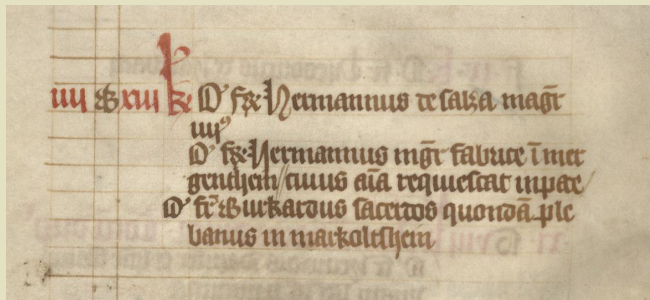 iiii B xiii k͛ O fr̄ Hermannus de salza magr̄
iiiiꝰ
O fr̄ Hermannus mgr̄ fabrice ī mer
genthein / cuius aīa requiescat in pace /
O fr̄ Burkardus sacerdos quondā ple
banus in markoltsheim